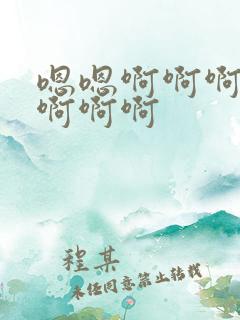 嗯嗯啊啊啊
啊啊啊
程某
未经同意禁止转载